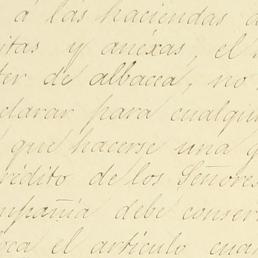 á las haciendas a
itas y anexas, el
ter de albacea, no
clarar para cualqui
que hacerse una
rédito de los Señores
mpañía debe conser
rea el artículo cua